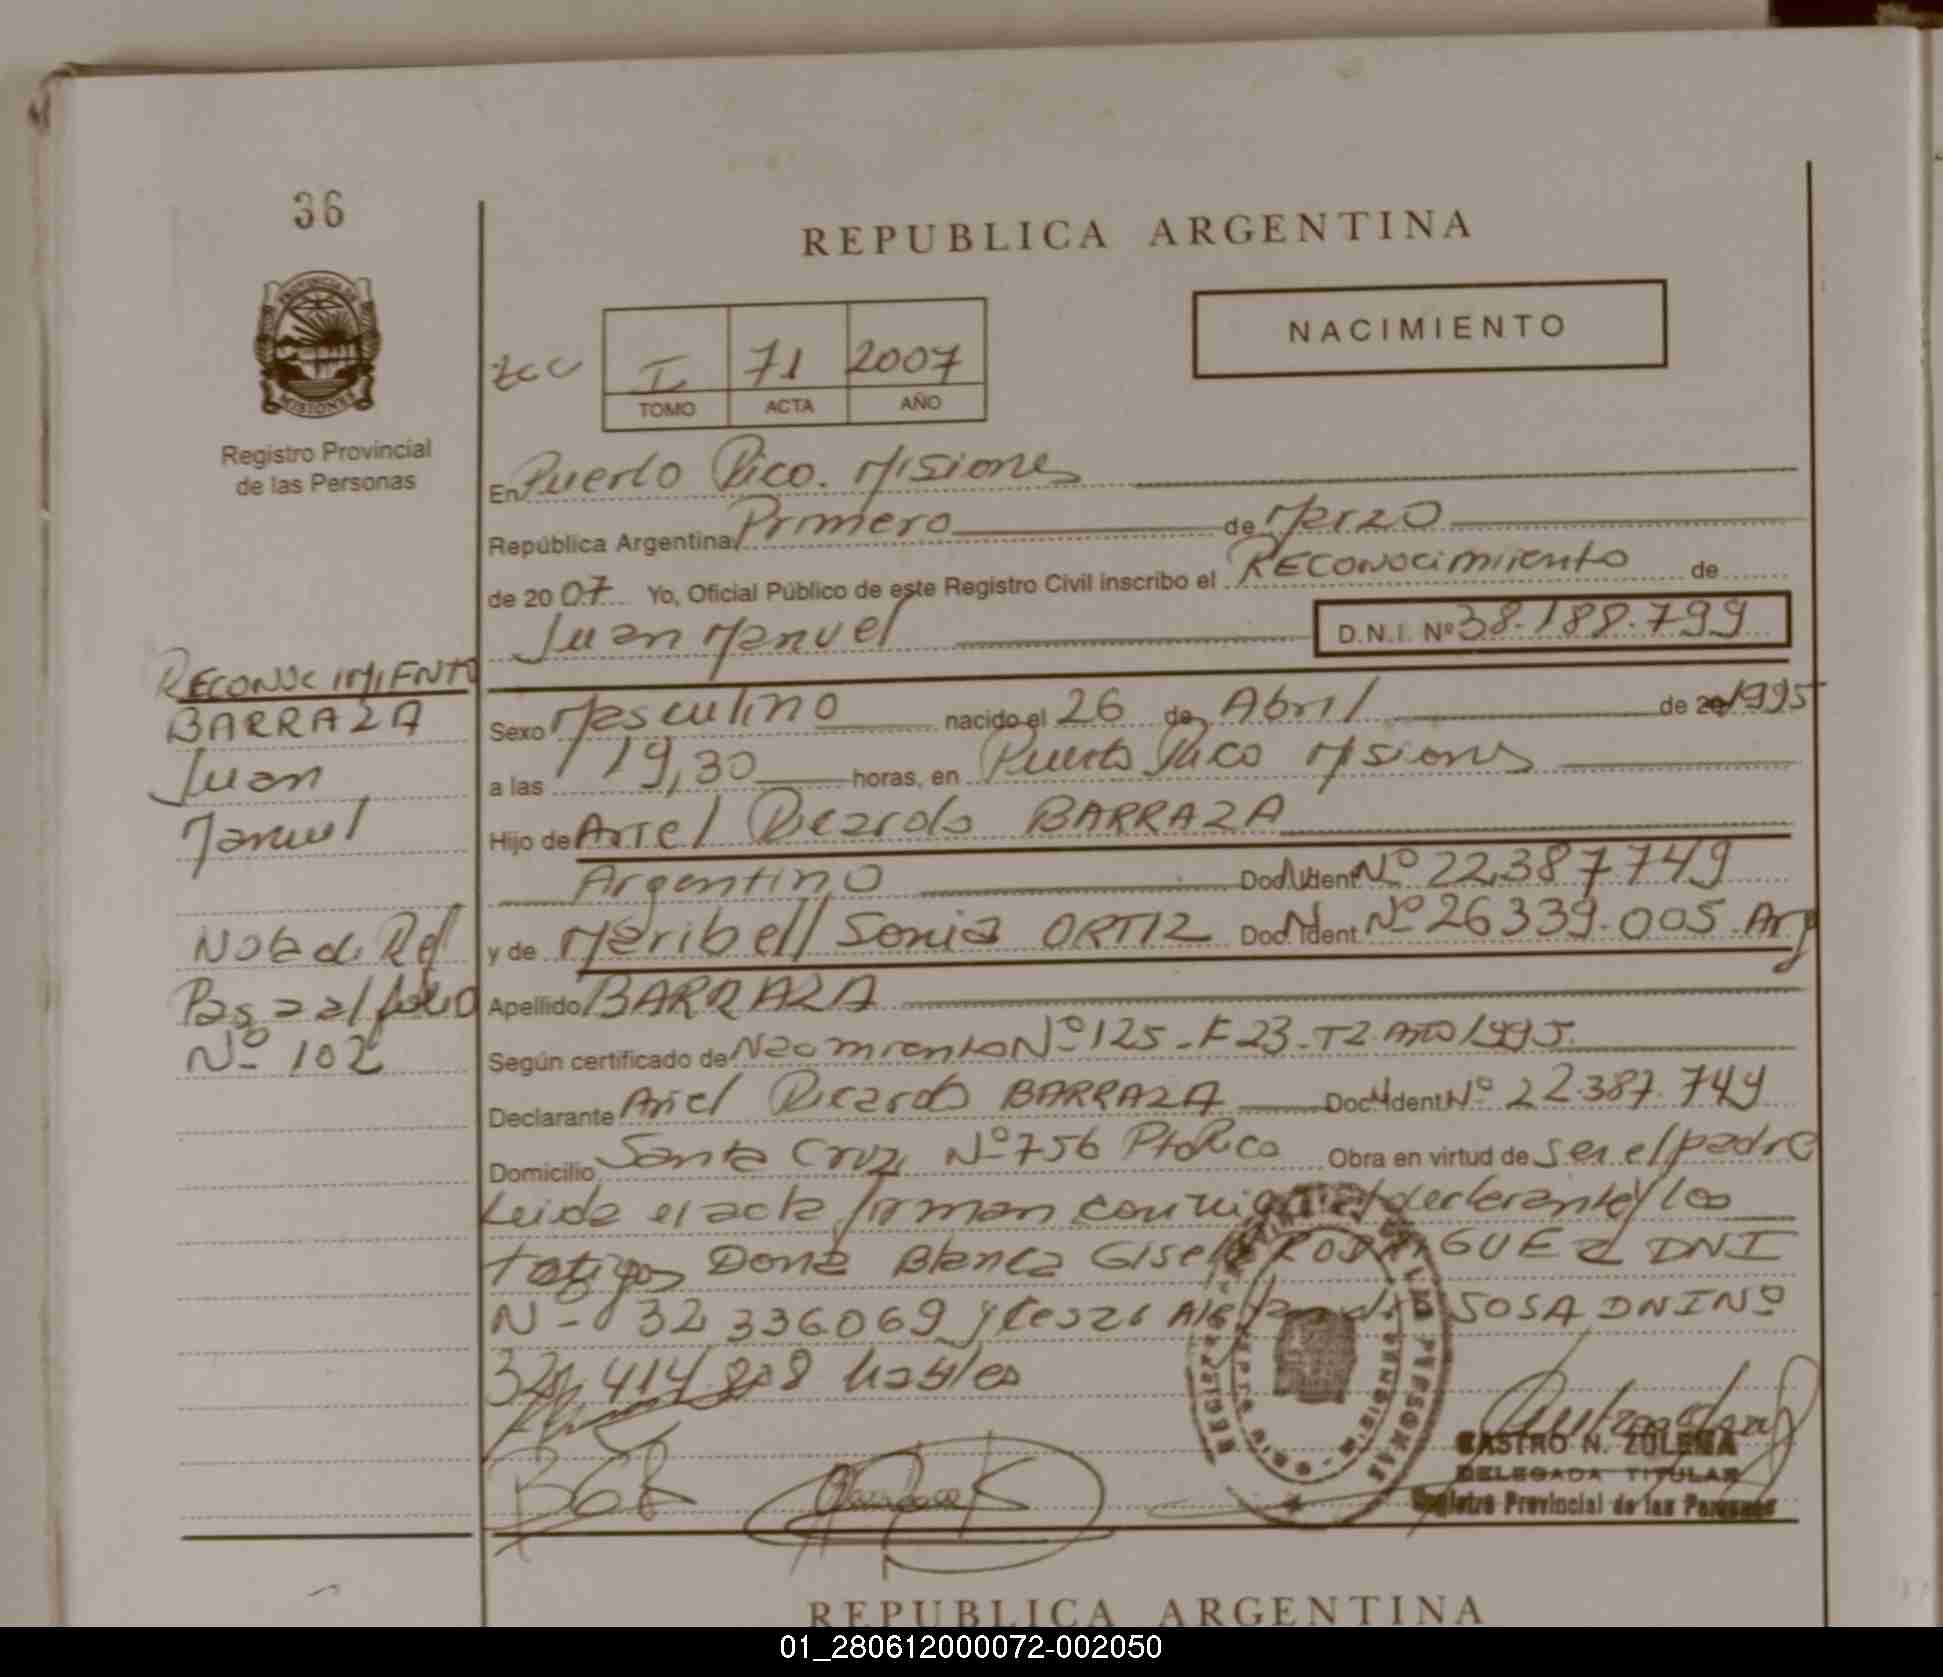 36
REPUBLICA ARGENTINA
NACIMIENTO
PROVINCIA DE
MISIONES
I 71 2007
TOMO ACTA AÑO
Registro Provincial
de las Personas
En Puerto Rico. Misiones
República Argentina, Primero de Marzo
de 2007 Yo, Oficial Público de este Registro Civil inscribo el RECONOCIMIENTO de
Juan Manuel D.N.I. Nº 38.188.799
RECONOCIMIENTO
BARRAZA
Juan
Manuel
Nota de Ref
Pasa al folio
Nº 102
Sexo Masculino nacido el 26 de Abril de 20 1995
a las 19,30 horas, en Puerto Rico Misiones
Hijo de Ariel Ricardo BARRAZA
Argentino Doc. Ident. Nº 22.387.749
y de Maribell Sonia ORTIZ Doc. Ident. Nº 26339.005 Arg
Apellido BARRAZA
Según certificado de Nacimiento Nº 125-F 23-T2 Año 1995.
Declarante Ariel Ricardo BARRAZA Doc. Ident. Nº 22.387.749
Domicilio Santa Cruz Nº 756 Pto Rico Obra en virtud de ser el padre
Leida el acta firman conmigo el declarante y los
testigos Doña Blanca Gisela RODRIGUEZ DNI
Nº 32336069 y Cesar Alejandro SOSA DNI Nº
414 habiles
CASTRO N. ZULEMA
DELEGADA TITULAR
Registro Provincial de las Personas
REPUBLICA ARGENTINA
01_280612000072-002050